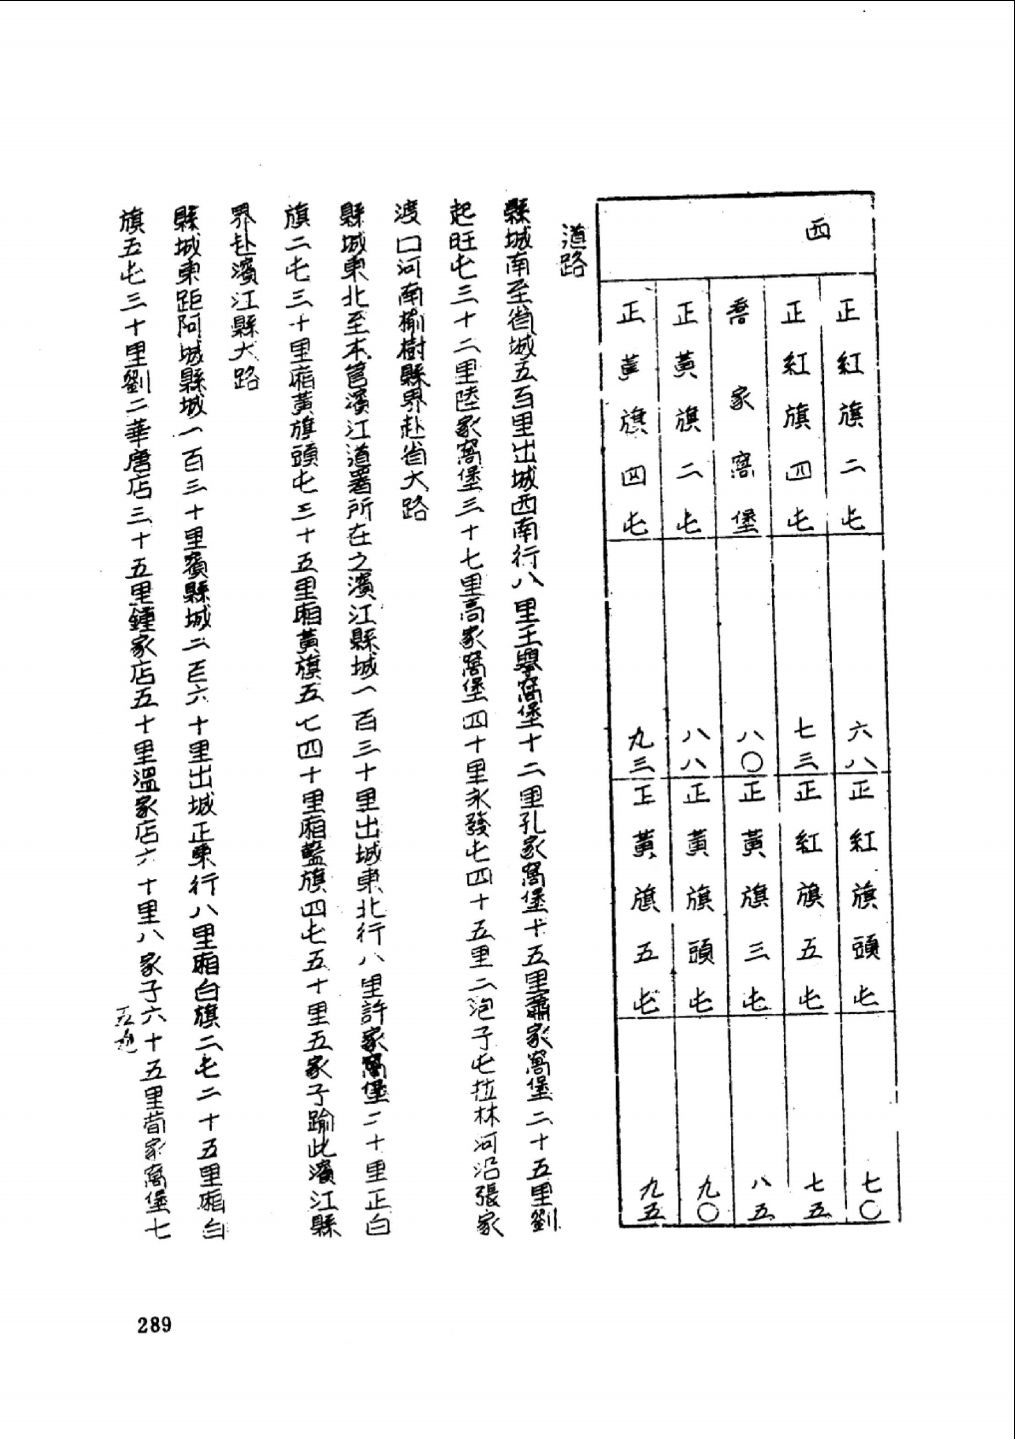 西
正紅旗二屯 六八 正紅旗頭屯 七〇
正紅旗四屯 七三 正紅旗五屯 七五
喬家窩堡 八〇 正黃旗三屯 八五
正黃旗二屯 八八 正黃旗頭屯 九〇
正黃旗四屯 九三 正黃旗五屯 九五
道路
縣城南至省城五百里出城西南行八里王學窩堡十二里孔家窩堡十五里蕭家窩堡二十五里劉
起旺屯三十二里陸家窩堡三十七里高家窩堡四十里永發屯四十五里二泡子屯拉林河沿張家
渡口河南榆樹縣界赴省大路
縣城東北至本管濱江道署所在之濱江縣城一百三十里出城東北行八里許家窩堡二十里正白
旗二屯三十里廂黃旗頭屯三十五里廂黃旗五七四十里廂藍旗四屯五十里五家子踰此濱江縣
界赴濱江縣大路
縣城東距阿城縣城一百三十里賓縣城二百六十里出城正東行八里廂白旗二屯二十五里廂白
旗五屯三十里劉二華唐店三十五里鍾家店五十里溫家店六十里八家子六十五里荀家窩堡七
289